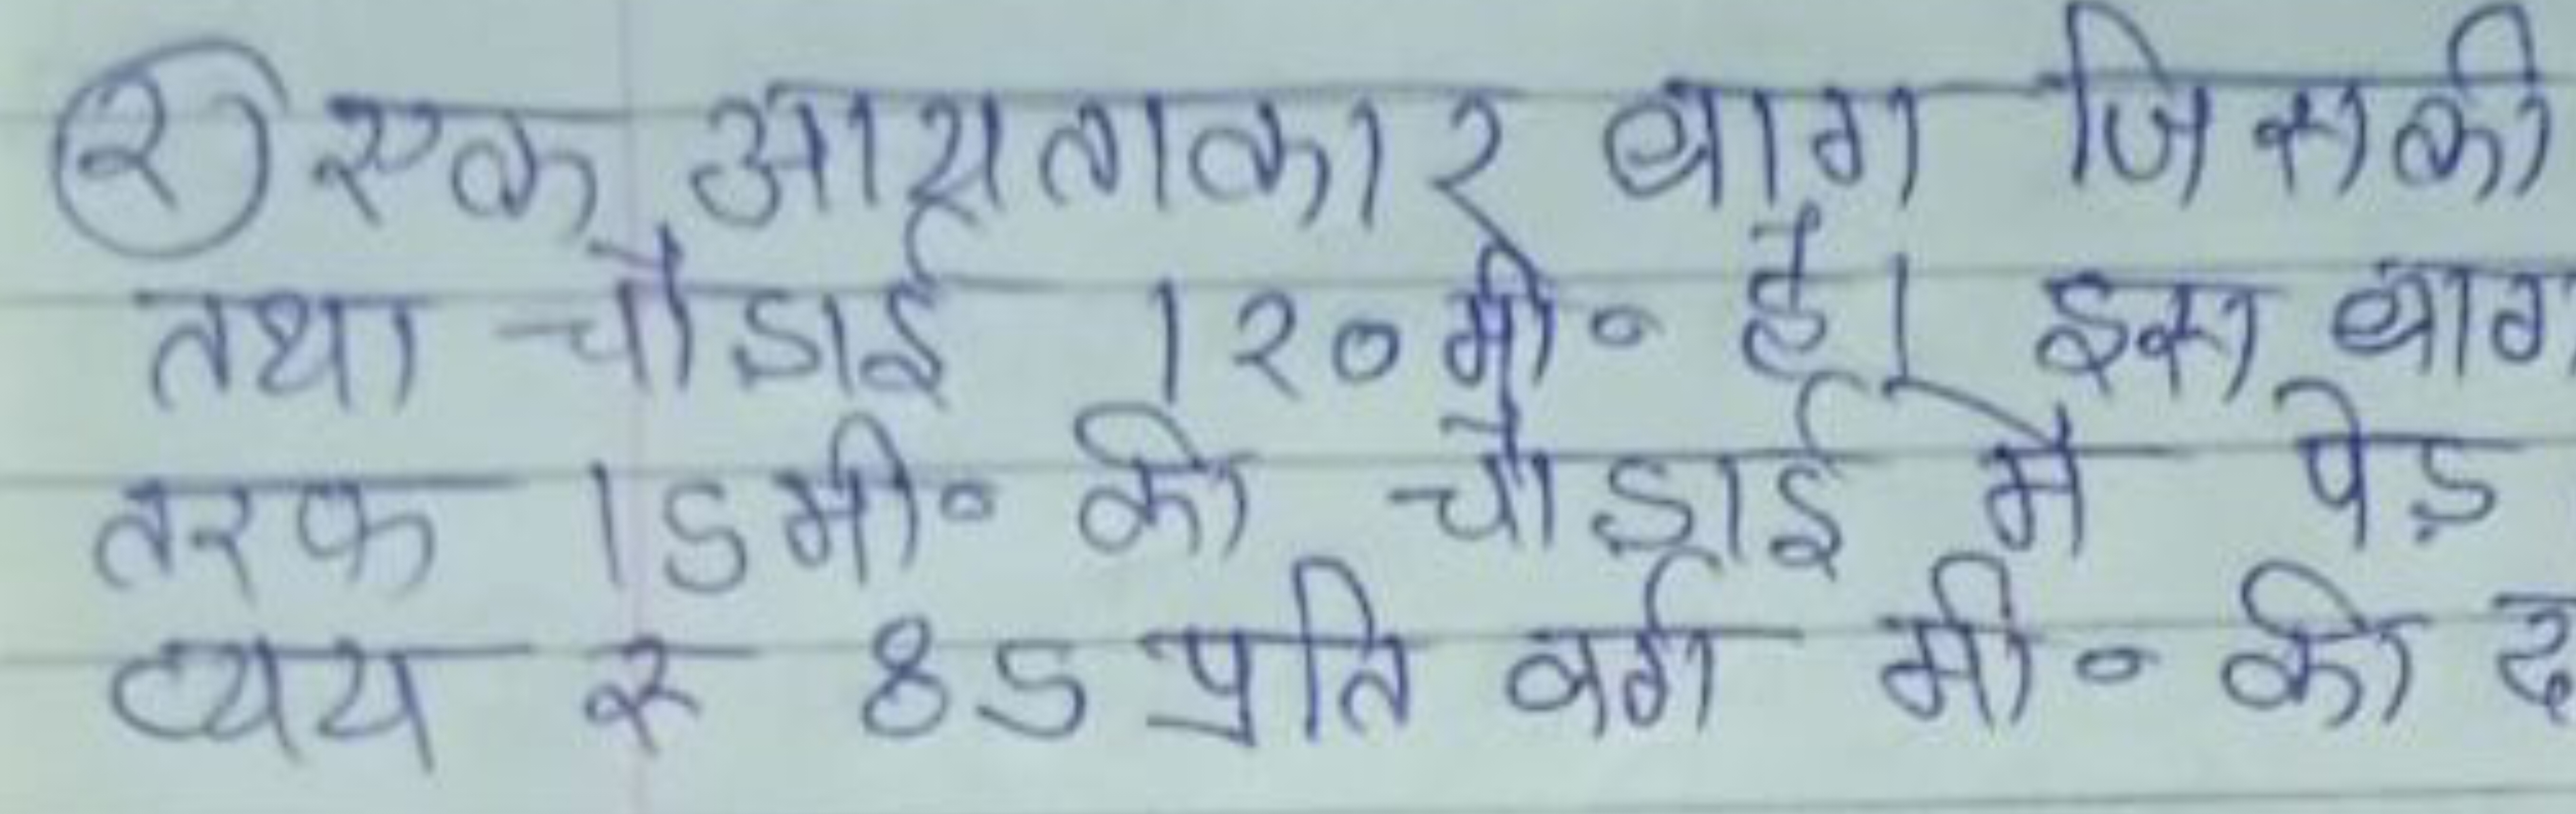 २ एक आयताकार बाग जिसकी
तथा चौडाई 120मी० है। इस बाग
तरफ 15मी० की चौडाई में पेड़
व्यय रू 85 प्रति वर्ग मी० की द